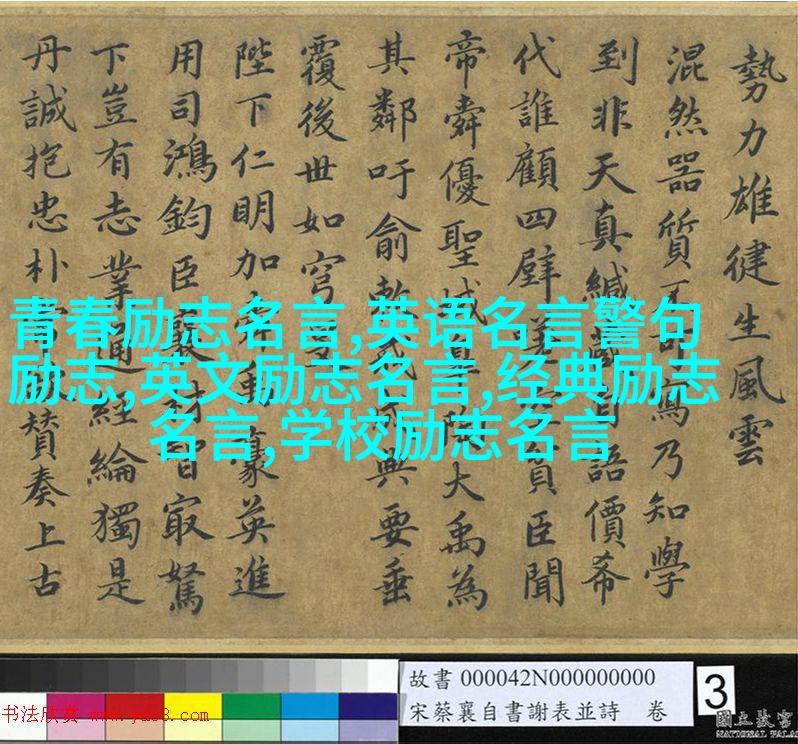 勢力雄健生風雲
混然器質寫乃知學
到非天真緘語價希
代誰顧四壁臣聞
帝舜優聖域大禹為
其鄰吁俞典要垂
覆後世如穹
陛下仁明加豪英進
用司鴻鈞臣襄智最駑
下豈有志業通經綸獨是
丹誠抱忠朴贊奏上古
青春励志名言,英语名言警句
励志,英文励志名言,经典励志
名言,学校励志名言
故書 000042N000000000
宋蔡襄自書謝表並詩 卷
3
國立故宮
NATIONAL PALA
书法欣赏